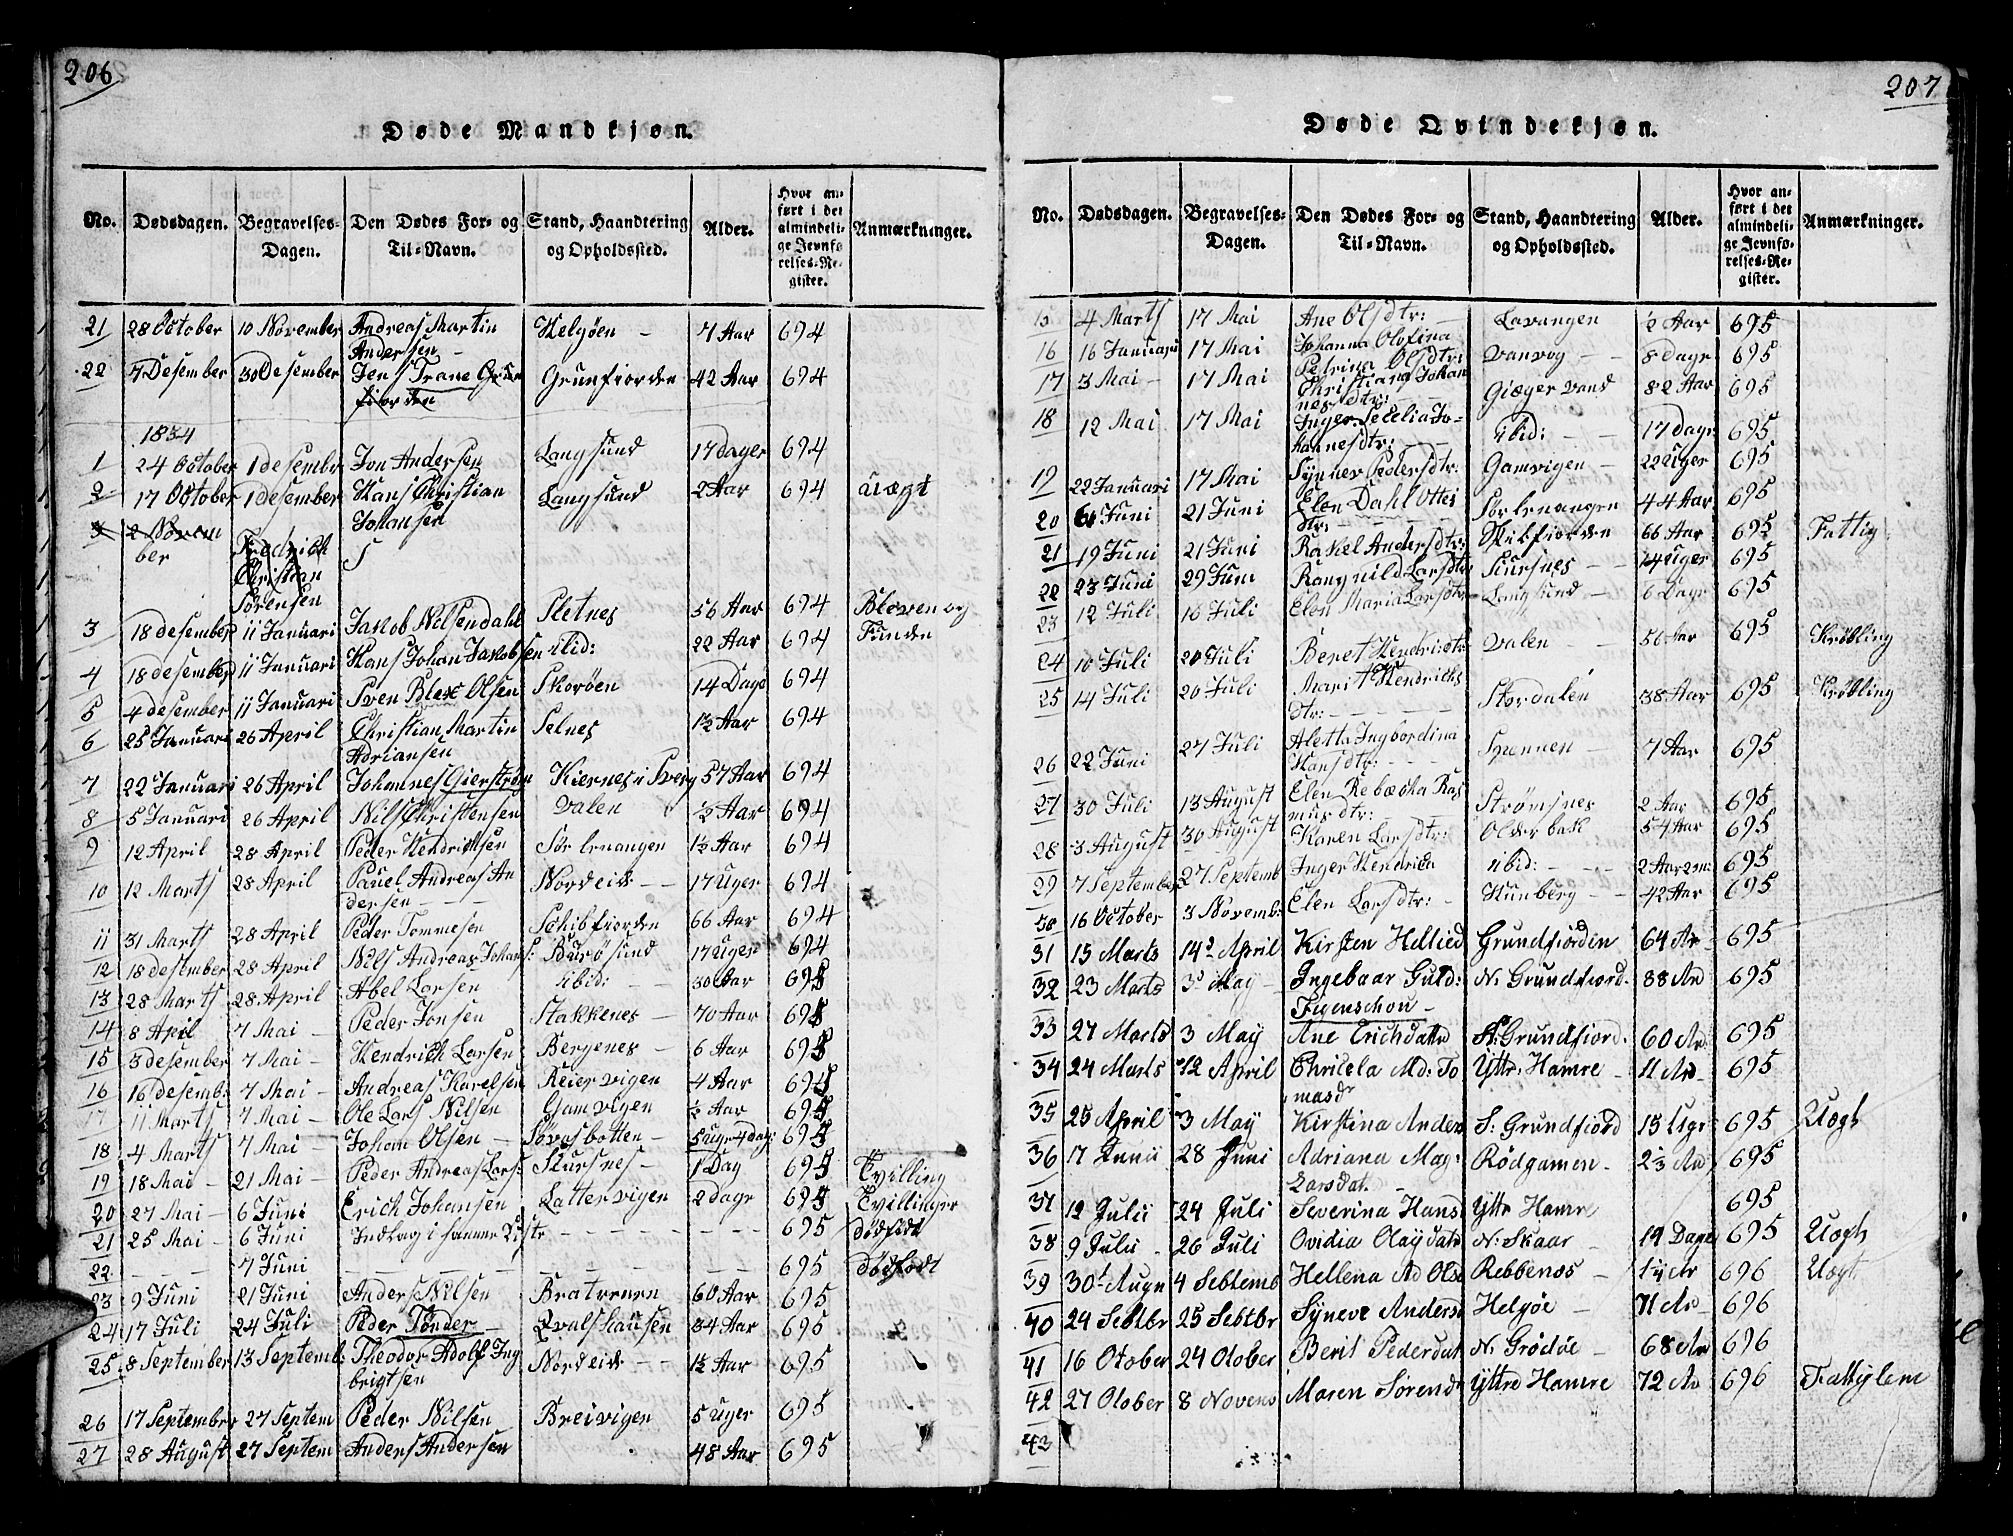 206
Døde Mandkjøn.
No. Dødsdagen. Begravelses-Dagen. Den Dødes For- og Til-Navn. Stand, Haandtering og Opholdssted. Alder. Hvor anført i det almindelige Jevnførelses-Register. Anmærkninger.
21 28 October 10 November Andreas Martin Helgøen - 7 Aar 694
Andersen -
22 7 Desember 30 Desember Jens Trane Grun Grunfiorden 42 Aar 694
fiorden
1834
1 24 October 1 desembr Jon Andersen Langsund 17 dager 694
2 17 October 1 desember Hans Christian Langsund 2 Aar 694 uægt
Johansen
3 2 Novem
ber Fredrich
Christian
Sørensen
3 18 desember 11 Januari Jakob Nilsen dahl Sletnes 56 Aar 694 Bleven og
4 18 desember 11 Januari Hans Johan Jakobsen ibid: 22 Aar 694 Funden
5 4 desember 11 Januari Sven Olsen Skorøen 14 Dage 694
6 25 Januari 26 April Christian Martin Selnes 1½ Aar 694
Adriansen
7 22 Januari 26 April Johannes Gierstrøm Kiernes i Sverg 57 Aar 694
8 5 Januari 26 April Nils Christensen Valen ½ Aar 694
9 12 April 28 April Peder Hendriksen Sørlenangen 1½ Aar 694
10 12 Marts 28 April Pauel Andreas An Nordeid - - 17 Uger 694
dersen - - -
11 31 Marts 28 April Peder Tommesen Schibfiorden 66 Aar 694
12 18 desember 28 April Nils Andreas Johans: Burøsund 17 uger 694
13 28 Marts 28 April Abel Larsen ibid: - 30 Aar 695
14 8 April 7 Mai - Peder Jonsen Stakkenes - 70 Aar 695
15 3 desember 7 Mai - Hendrich Larsen Berjenes - 6 Aar 695
16 16 desemb: 7 Mai - Andreas Karelsen Reiervigen 4 Aar 695
17 11 Marts 7 Mai - Ole Lars Nilsen Gamvigen ½ Aar 695
18 4 Marts 7 Mai - Johan Olsen - Søvasbotten - 5 ugr 4 dag: 695
19 18 Mai - 21 Mai - Peder Andreas Lars: Skursnes - 1 Dag 695 Tvilling
20 27 Mai - 6 Juni Erich Johansen Lattervigen 2 dage 695 Tvillinger
21 25 Mai - 6 Juni Indlag i samme Kiste - - - - - 695 dødfødt
22 - - - 7 Juni - - - - - - 695 dødfødt
23 9 Juni 21 Juni Anders Nilsen Bratrenen 60 Aar 695
24 17 Juli 24 Juli Peder Tønder - Qvalshausen 34 Aar 695
25 8 September 13 Septemb: Theodor Adolf Ing Nordeid - - 1½ Aar 695
brigtsen
26 17 September 27 Septem Peder Nilsen Breivigen 5 uger 695
27 28 August 27 Septem Anders Andersen 48 Aar 695
207
Døde Qvindekjøn.
No. Dødsdagen. Begravelses-Dagen. Den Dødes For- og Til-Navn. Stand, Haandtering og Opholdssted. Alder. Hvor anført i det almindelige Jevnførelses-Register. Anmærkninger.
15 4 Marts 17 Mai Ane Olsdtr: - Lavangen ½ Aar 695
16 16 Januari 17 Mai Johanna Olofina Vanvog - - 8 dage 695
Petrina Olsdtr:
17 3 Mai - 17 Mai Christiana Johan Giæger vand 82 Aar 695
nesdtr: - -
18 12 Mai 17 Mai Inger Secelia Jo- ibid: - - 17 Dage 695
hannesdtr: - -
19 22 Januari 17 Mai Synnev Pedersdtr: Gamvigen - 22 Uger 695
20 6 Juni 21 Juni Elen Dahl Ottes Sørlenangen 44 Aar 695
dtr: - - - -
21 19 Juni 21 Juni Rakel Andersdtr: Skibfiorden 66 Aar 695 Fattig
22 23 Juni 29 Juni Rangnild Larsdtr Skursnes - - 14 uger 695
23 12 Juli 16 Juli Elen Maria Larsdtr - Langsund - 6 Dage 695
24 10 Juli 20 Juli Beret Hendri: dtr Valen - - 56 Aar 695 Krøbling
25 14 Juli 20 Juli Marit Hendrichs Stordalen 38 Aar 695 Krøbling
dtr: - - - -
26 22 Juni 27 Juli Aletta Ingbordina Spannen - 7 Aar 695
Hansdtr: - - -
27 30 Juli 13 August Elen Rebecka Ras Strømsnes 2 Aar 695
musdtr:
28 3 August 30 August Karen Larsdtr: Olderbak 54 Aar 695
29 7 September 27 Septemb Inger Hendrich ibid: - - - 2 Aar 2 m: 695
30 16 October 3 Novemb: Elen Larsdtr: - Hunberg - - 42 Aar 695
31 15 Marts 14de April Kirsten Hellied Grundfiorden 64 Ar 695
32 23 Marts 3d May - Ingebaar Guld: N. Grundfiord. 88 Ar 695
Figenschou -
33 27 Marts 3 May Ane Erichdatte S: Grundfiord. 60 Ar 695
34 24 Marts 12 April Chricela Md: To Yttr: Hamre - 11 Ar 695
masd
35 25 April 3 May Kirstina Anders S: Grundfiord 15 Ugr 695 Uægt
36 17 Junii 28 Juni Adriana Mag: Rødgamen - 2⅓ Ar 695
Larsdat. -
37 12 Julii 24 Juli Severina Hans Yttr Hamre 695
38 9 Julii - 26 Juli Ovidia Olaydatr N: Skaar - 14 Dage 695 Uægt
39 30t Augu 4 Sebtemb Hellena Ad Olse Rebbenes - 1¼ Ar 696 Uægt
40 24 Sebtbr 25 Sebtbr Syneve Anders Helgøe - 71 Ar - 696
41 16 Otober 24 Otober Beril Pederdat N: Grødøe - 68 Ar 696
42 27 Otober 8 Novemb Maren Sørend Yttre Hamre 72 Ar 696 Fattiglem
43